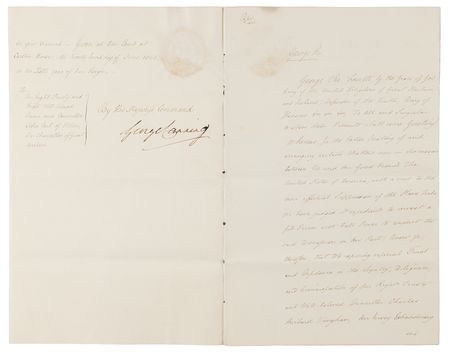 is given at Our Court at
Carlton House the
in the Sixth year of Our Reign.
To
Our Right Trusty and
Right Well beloved
Cousin and Councillor
John Earl of Eldon
Our Chancellor of Great
Britain
By His Majesty's Command
George Canning
George R.
George the Fourth by the Grace of God
King of the United Kingdom of Great Britain
and Ireland, Defender of the Faith, King of
Hanover &c &c &c. To All and Singular
to whom these Presents shall come, Greeting
Whereas for the better treating of and
arranging certain Matters now in discussion
between Us and Our Good Friends The
United States of America, with a view to the
more effectual Suppression of the Slave Trade,
We have judged it expedient to invest a
fit Person with Full Power to conduct the
said on Our Part; Know Ye,
therefore, that We reposing especial Trust
and Confidence in the Loyalty, Diligence,
and Circumspection of Our Right Trusty
and Well-beloved Councillor Charles
Richard Vaughan, Our Envoy Extraordinary
and